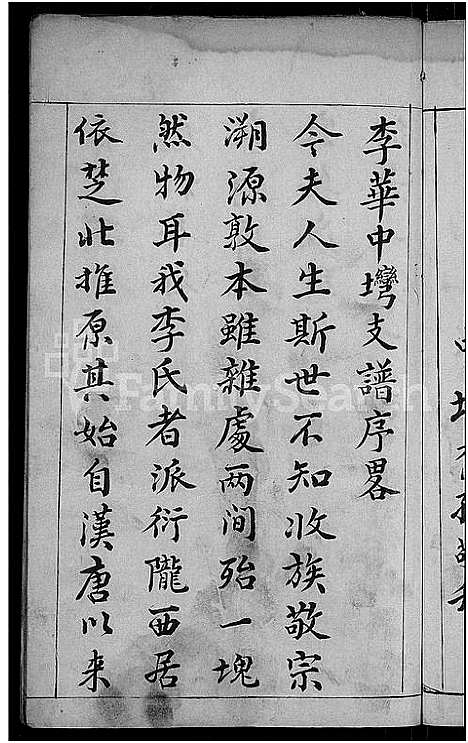 李華中灣支譜序畧
今夫人生斯世不知收族敬宗
溯源敦本雖雜處两间殆一塊
然物耳我李氏者派衍隴西居
依楚北推原其始自漢唐以来
FamilySearch